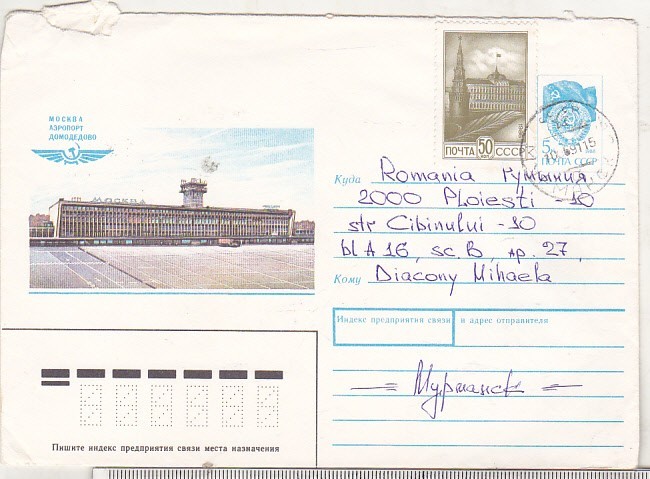 МОСКВА
АЭРОПОРТ
ДОМОДЕДОВО
МОСКВА
ПОЧТА 50 КОП СССР
5
ПОЧТА СССР
Куда Romania Румыния.
2000 Ploiești - 10
str Cibinului - 10
bl A 16, sc. B, ap. 27,
Кому Diacony Mihaela
Индекс предприятия связи и адрес отправителя
= Мурманск =
Пишите индекс предприятия связи места назначения